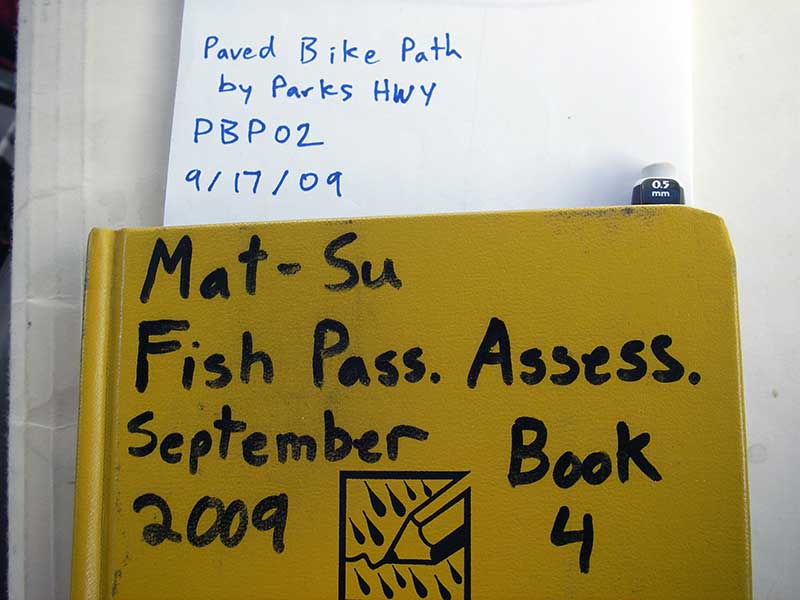 Paved Bike Path
by Parks HWY
PBP02
9/17/09
0.5
mm
Mat-Su
Fish Pass. Assess.
September
2009
Book
4